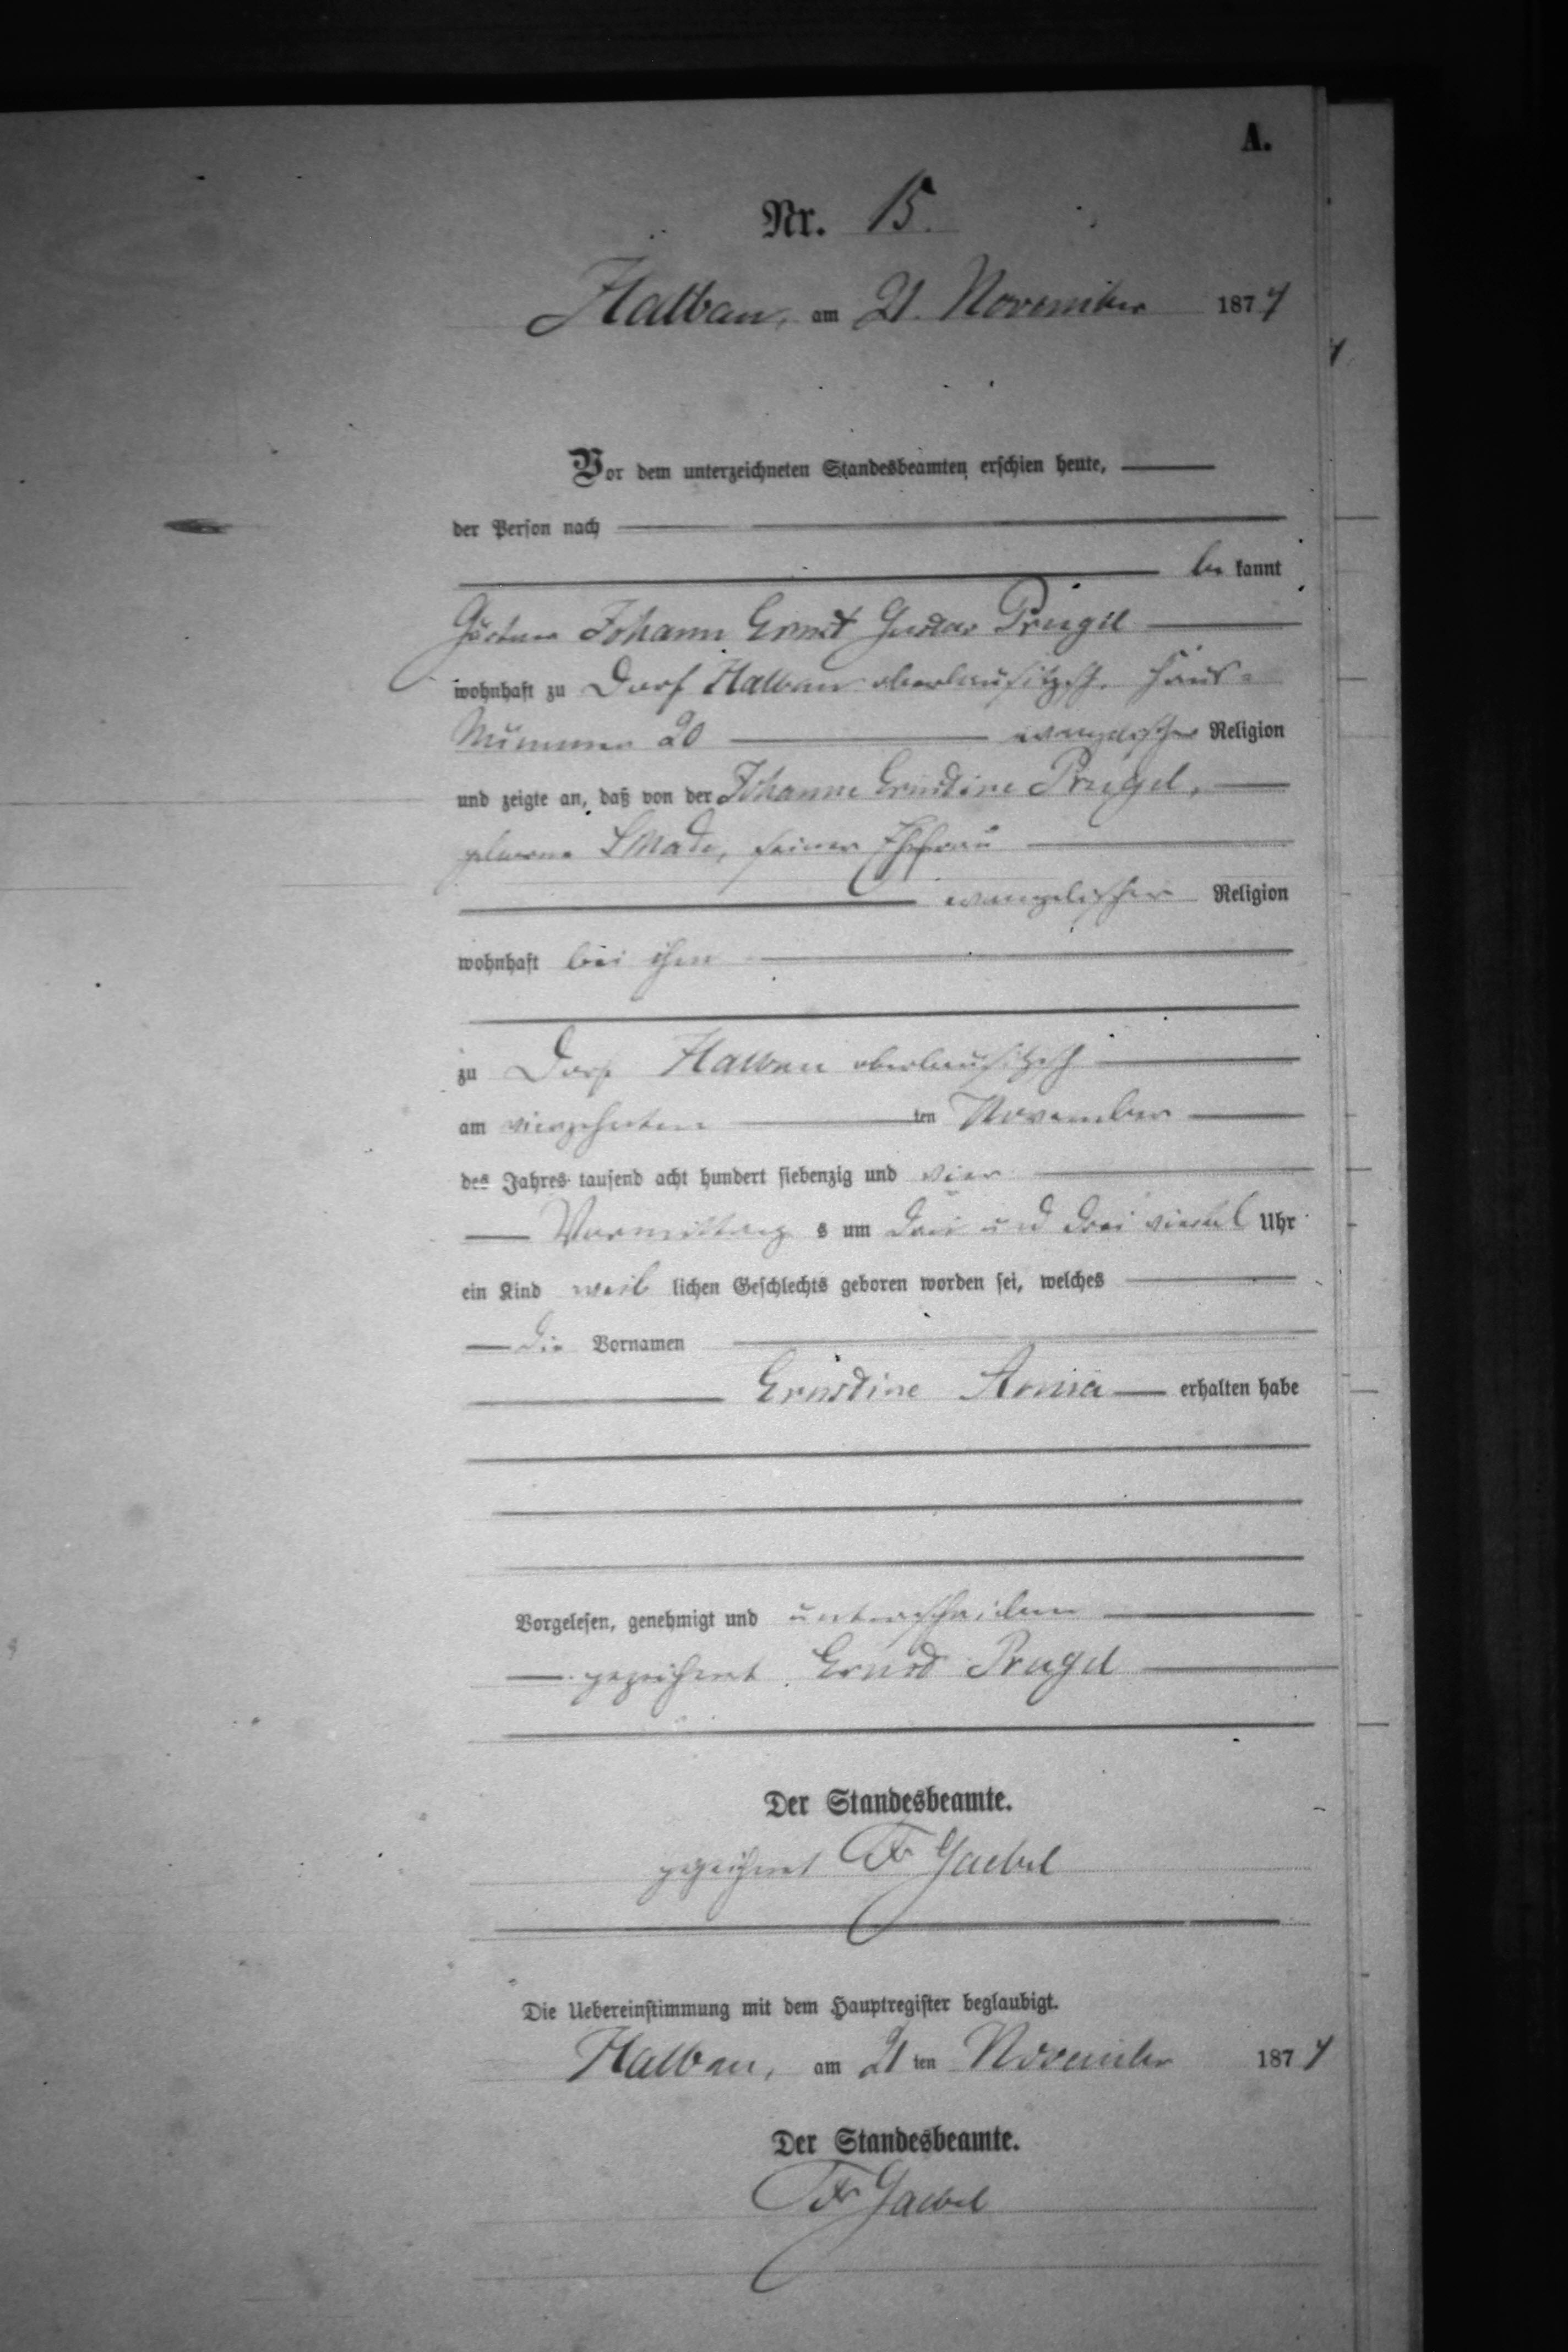 A.
Nr. 15.
Halbau, am 21. November 1874
Vor dem unterzeichneten Standesbeamten erschien heute,
der Person nach
be kannt
Gärtner Johann Ernst Gustav Prugel
wohnhaft zu Dorf Halbau oberlausitzsch. Haus-
Nummer 20 evangelischer Religion
und zeigte an, daß von der Johanne Ernstine Prugel,
geborene seiner Ehefrau
evangelischer Religion
wohnhaft bei ihm
zu Dorf Halbau oberlausitzsch
am vierzehnten ten November
des Jahres tausend acht hundert siebenzig und vier
Vormittag s um drei und drei viertel Uhr
ein Kind weib lichen Geschlechts geboren worden sei, welches
die Vornamen
Ernstine Anna erhalten habe
Vorgelesen, genehmigt und unterschrieben
gezeichnet Ernst Prugel
Der Standesbeamte.
gezeichnet Fr Gaebel
Die Uebereinstimmung mit dem Hauptregister beglaubigt.
Halbau, am 21 ten November 1874
Der Standesbeamte.
Fr Gaebel